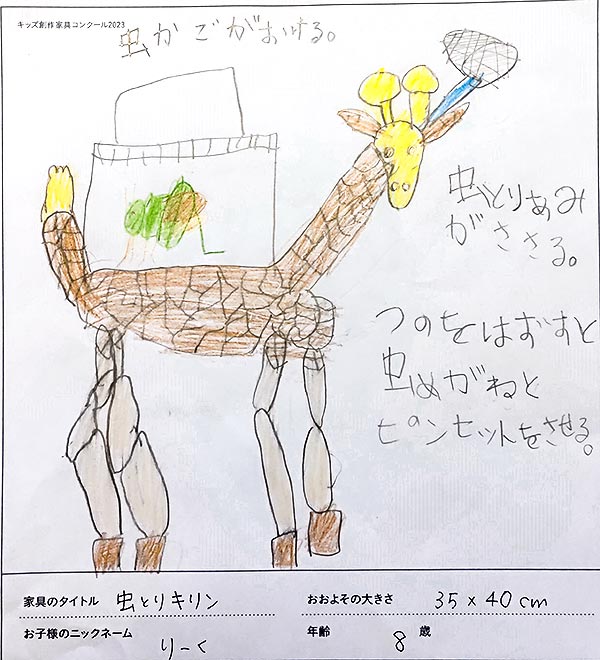 キッズ創作家具コンクール2023
虫かごがおける。
虫とりあみ
がささる。
つのをはずすと
虫めがねと
ピンセットをさせる。
家具のタイトル 虫とりキリン
おおよその大きさ 35×40cm
お子様のニックネーム りーく
年齢 8 歳